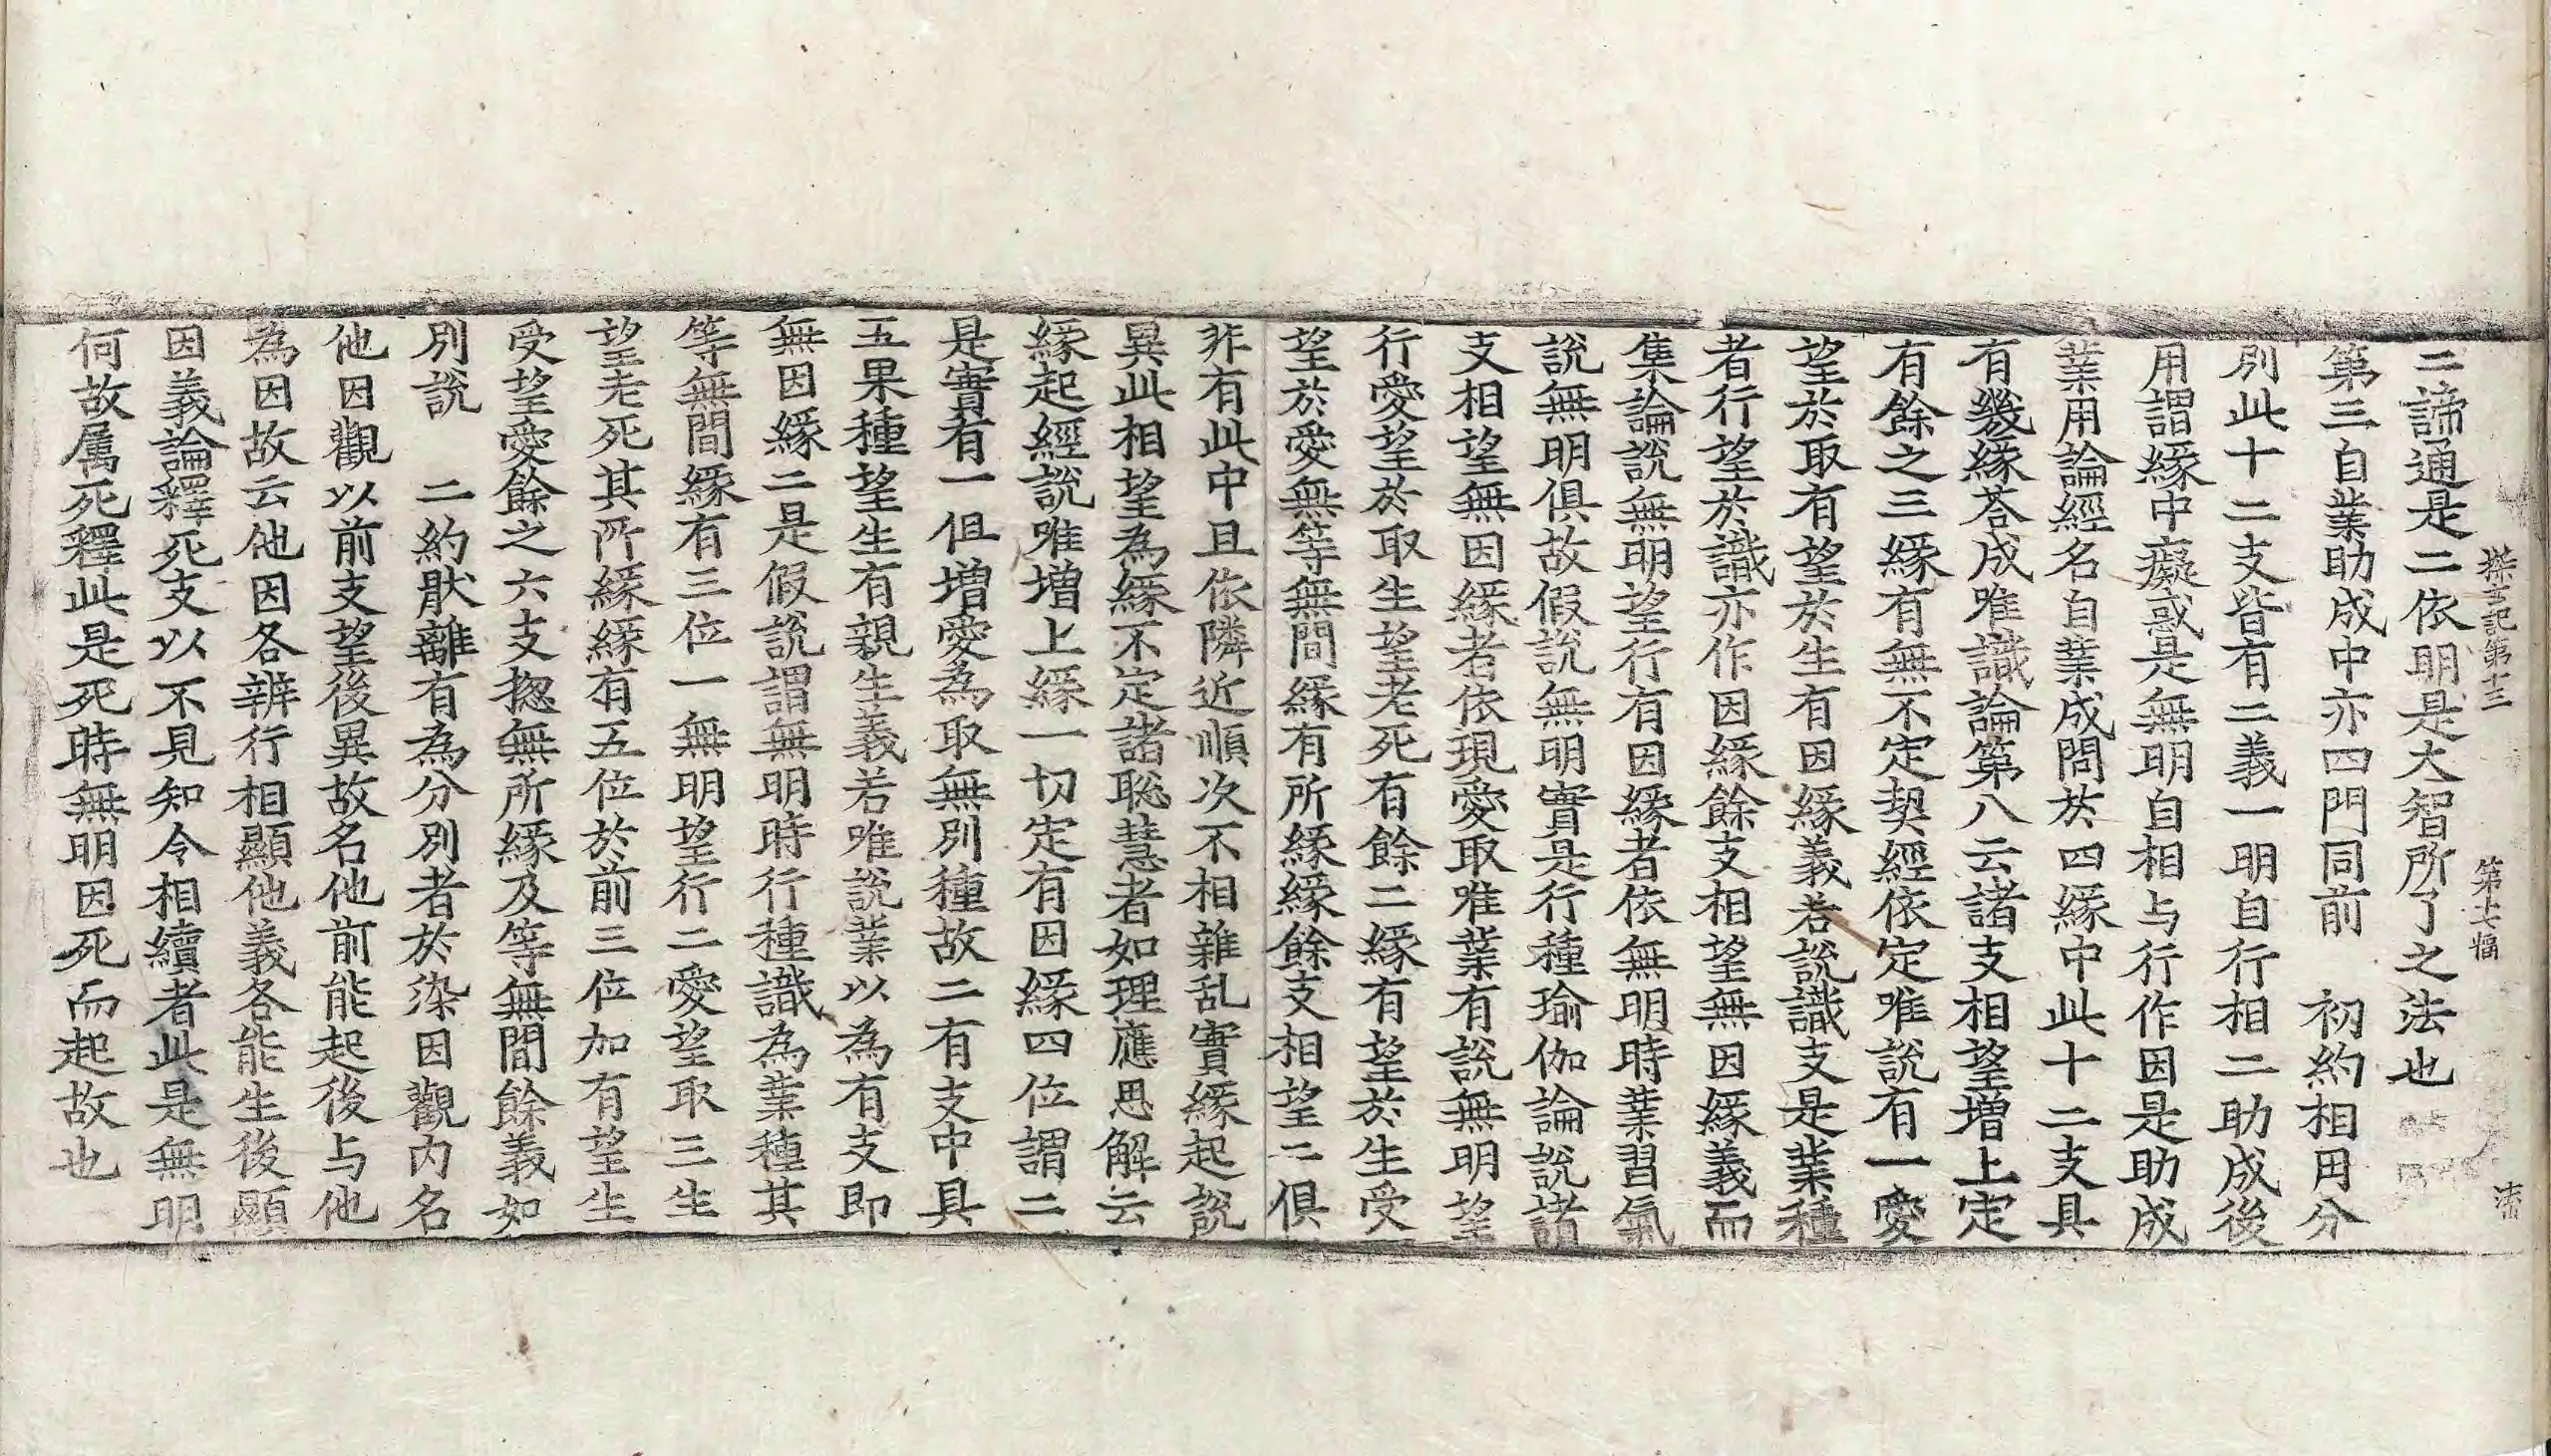 探玄記第十三　第十七幅　溱
二諦通是二依明是大智所了之法也
第三自業助成中亦四門同前　初約相用分
別此十二支皆有二義一明自行相二助成後
用謂緣中癡惑是無明自相与行作因是助成
業用論經名自業成問於四緣中此十二支具
有幾緣荅成唯識論第八云諸支相望增上定
有餘之三緣有無不定契經依定唯說有一愛
望於取有望於生有因緣義若說識支是業種
者行望於識亦作因緣餘支相望無因緣義而
集論說無明望行有因緣者依無明時業習氣
說無明俱故假說無明實是行種瑜伽論說諸
支相望無因緣者依現愛取唯業有說無明望
行愛望於取生望老死有餘二緣有望於生受
望於愛無等無間緣有所緣緣餘支相望二俱
非有此中且依隣近順次不相雜乱實緣起說
異此相望為緣不定諸聡慧者如理應思解云
緣起經說唯增上緣一切定有因緣四位謂二
是實有一但增愛為取無別種故二有支中具
五果種望生有親生義若唯說業以為有支即
無因緣二是假說謂無明時行種識為業種其
等無間緣有三位一無明望行二愛望取三生
望老死其所緣緣有五位於前三位加有望生
受望愛餘之六支揔無所緣及等無間餘義如
別說　二約猒離有為分別者於染因觀內名
他因觀以前支望後異故名他前能起後与他
為因故云他因各辨行相顯他義各能生後顯
因義論釋死支以不見知令相續者此是無明
何故属死釋此是死時無明因死而起故也